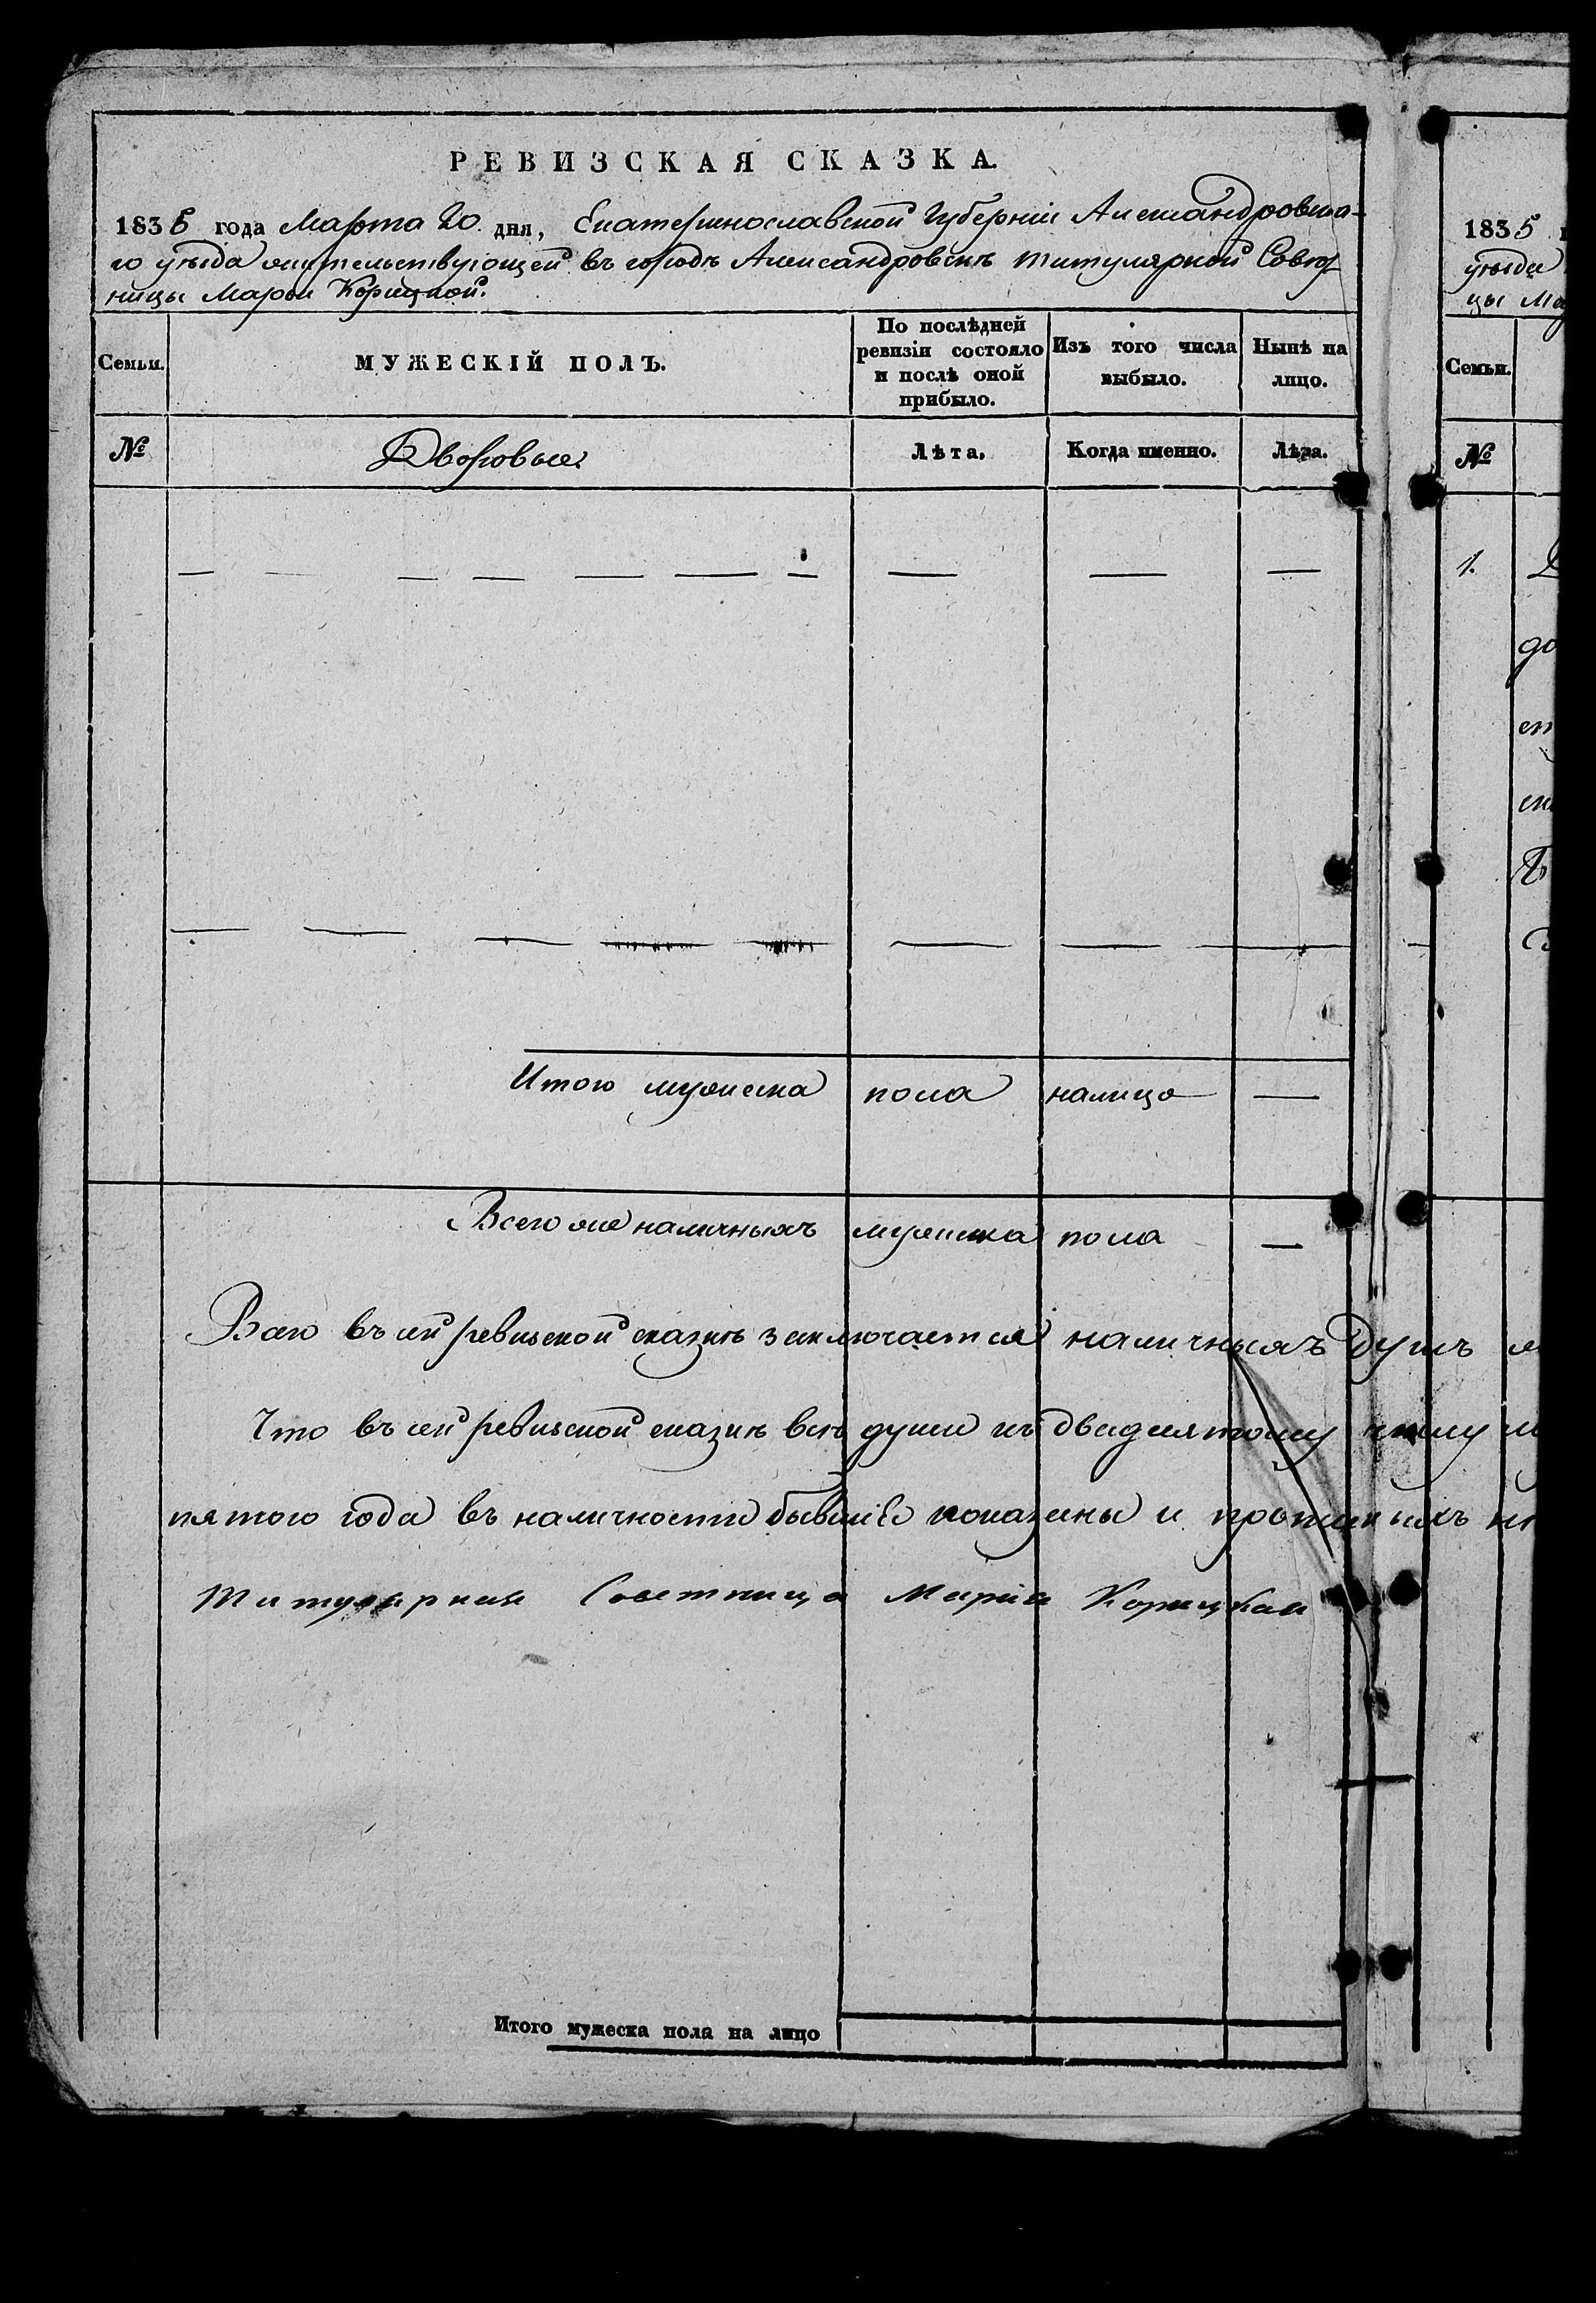 РЕВИЗСКАЯ СКАЗКА.
1835 года Марта 20 дня, Екатеринославской Губерніи Александровска-
го уѣзда жительствующей въ городѣ Александровскѣ титулярной Совѣт
ницы Марьи Корицкой.
Семьи.
МУЖЕСКІЙ ПОЛЪ.
По послѣдней ревизіи состояло и послѣ оной прибыло.
Изъ того числа выбыло.
Нынѣ на лицо.
№
Дворовые.
Лѣта.
Когда именно.
Лѣта.
Итого мужеска пола налицо —
Всего же наличныхъ мужеска пола —
Всего въ сей ревизской сказкѣ заключается наличныхъ душъ
Что въ сей ревизской сказкѣ всѣ души къ двадцятому числу
пятого года въ наличности бывшіе показаны и
Титулярная Советница Марія Корицкая
Итого мужеска пола на лицо
1835
уѣзда
цы
Семьи.
№
1.